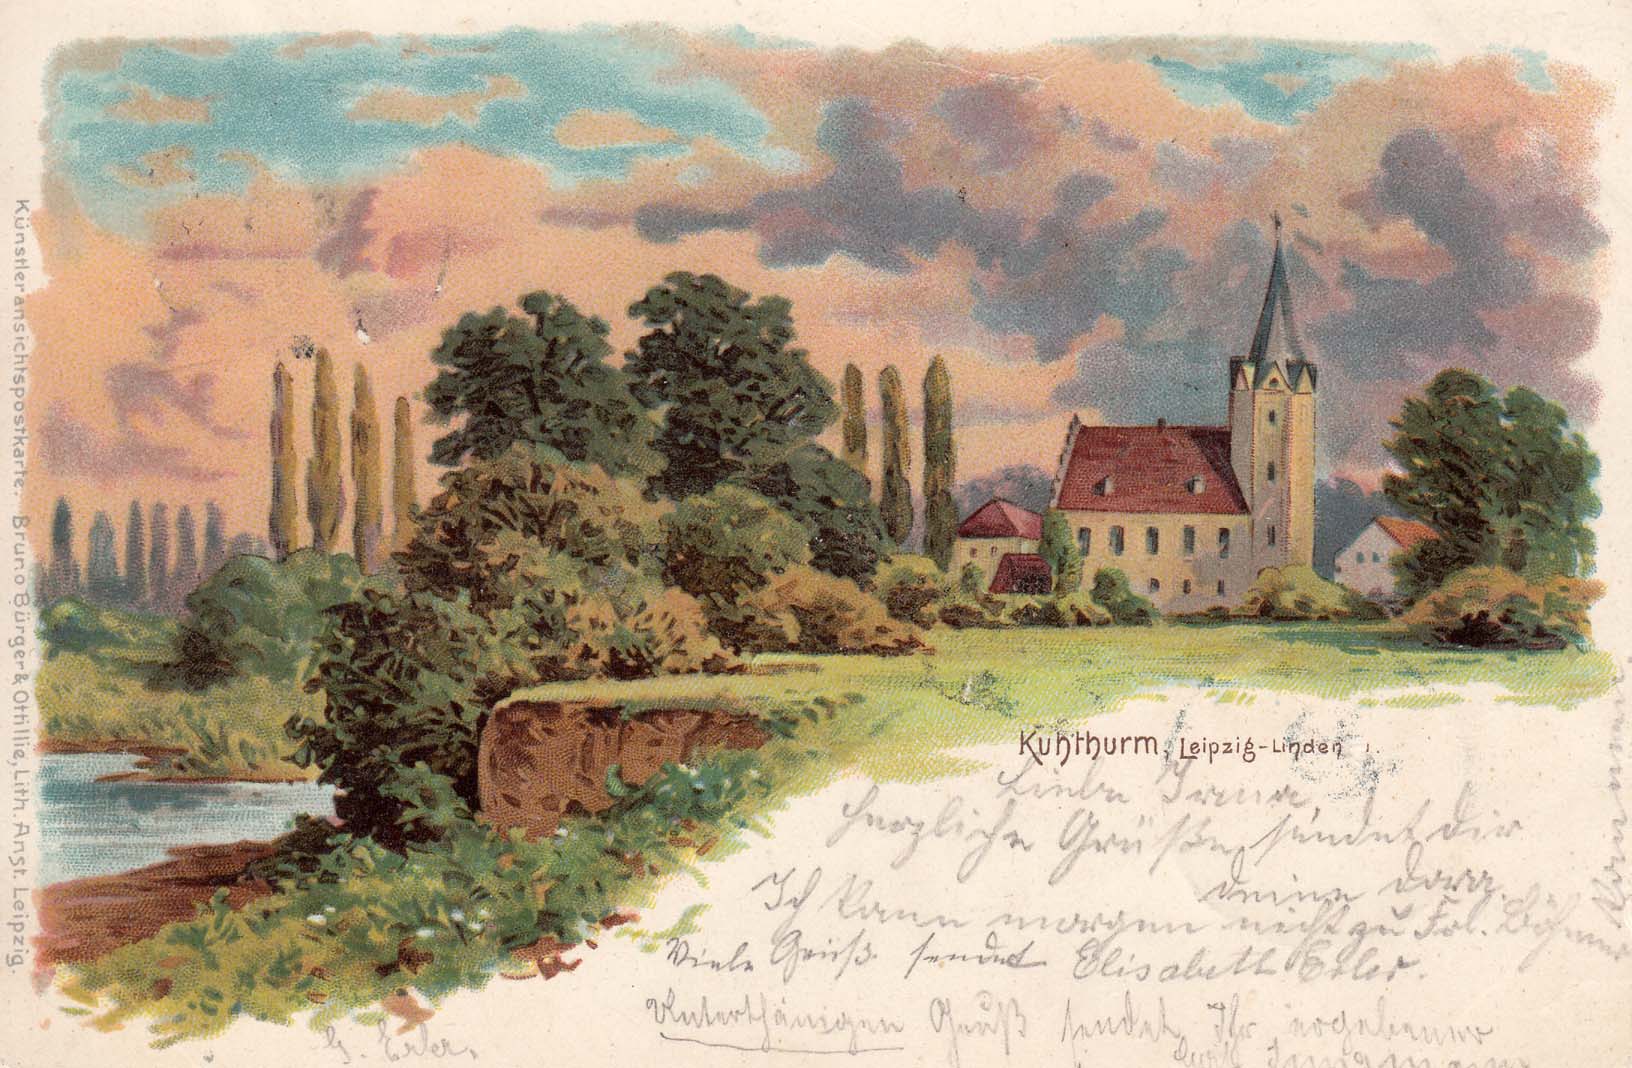 Künstleransichtspostkarte. Bruno Bürger & Ottillie, Lith. Anst. Leipzig.
Kuhthurm, Leipzig-Linden
Liebe Irma,
herzliche Grüße sendet dir
deine Dora.
Ich kann morgen nicht zu Frl. Böhmer
kommen
Viele Grüß. sendet Elisabeth Erler.
Unterthänigen Gruß sendet Ihr ergebener
G. Erler.